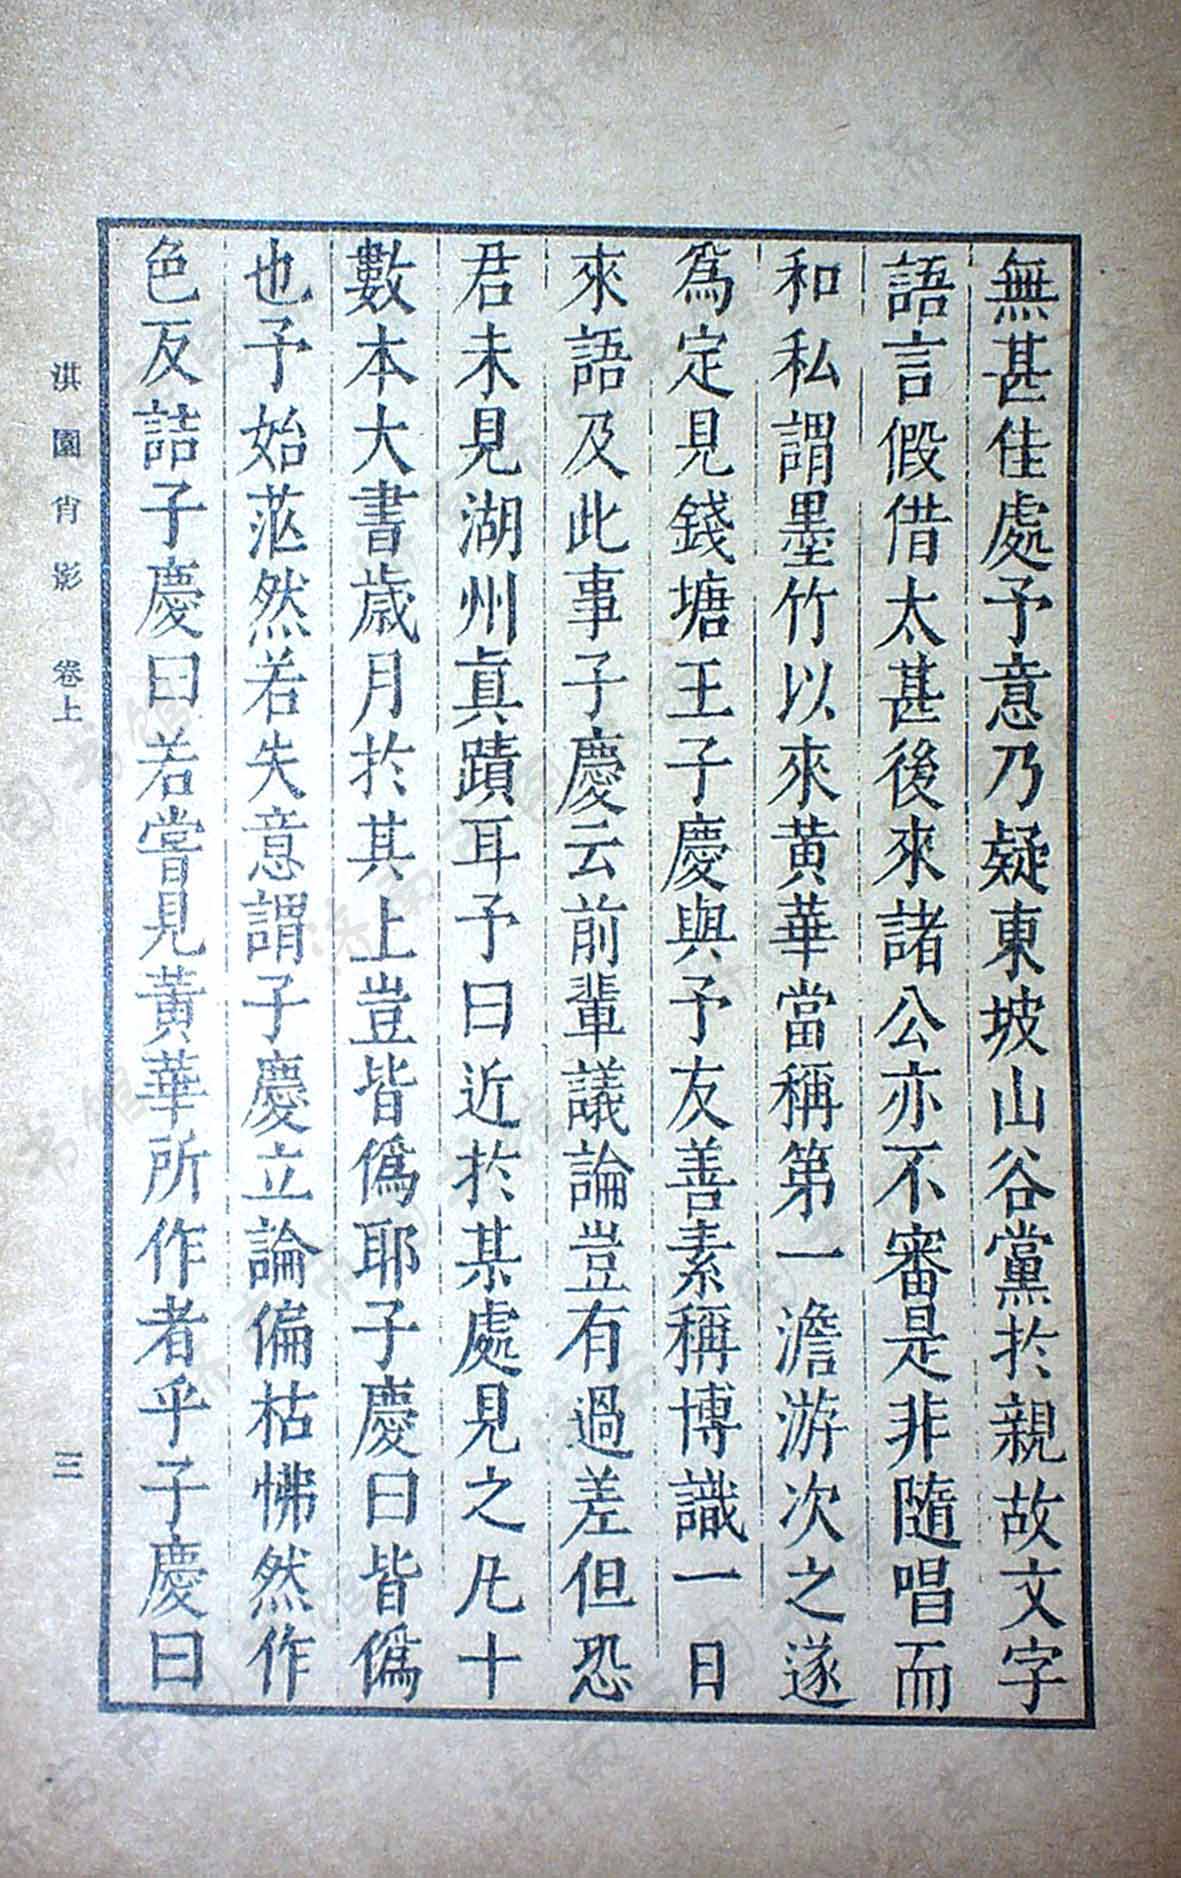 無甚佳處予意乃疑東坡山谷黨於親故文字
語言假借太甚後來諸公亦不審是非隨唱而
和私謂墨竹以來黄華當稱第一澹游次之遂
爲定見錢塘王子慶與予友善素稱博識一日
來語及此事子慶云前輩議論豈有過差但恐
君未見湖州眞蹟耳予曰近於某處見之凡十
數本大書歲月於其上豈皆僞耶子慶曰皆僞
也予始茫然若失意謂子慶立論偏枯怫然作
色反詰子慶曰若嘗見黄華所作者乎子慶曰
淇園肖影 卷上 三